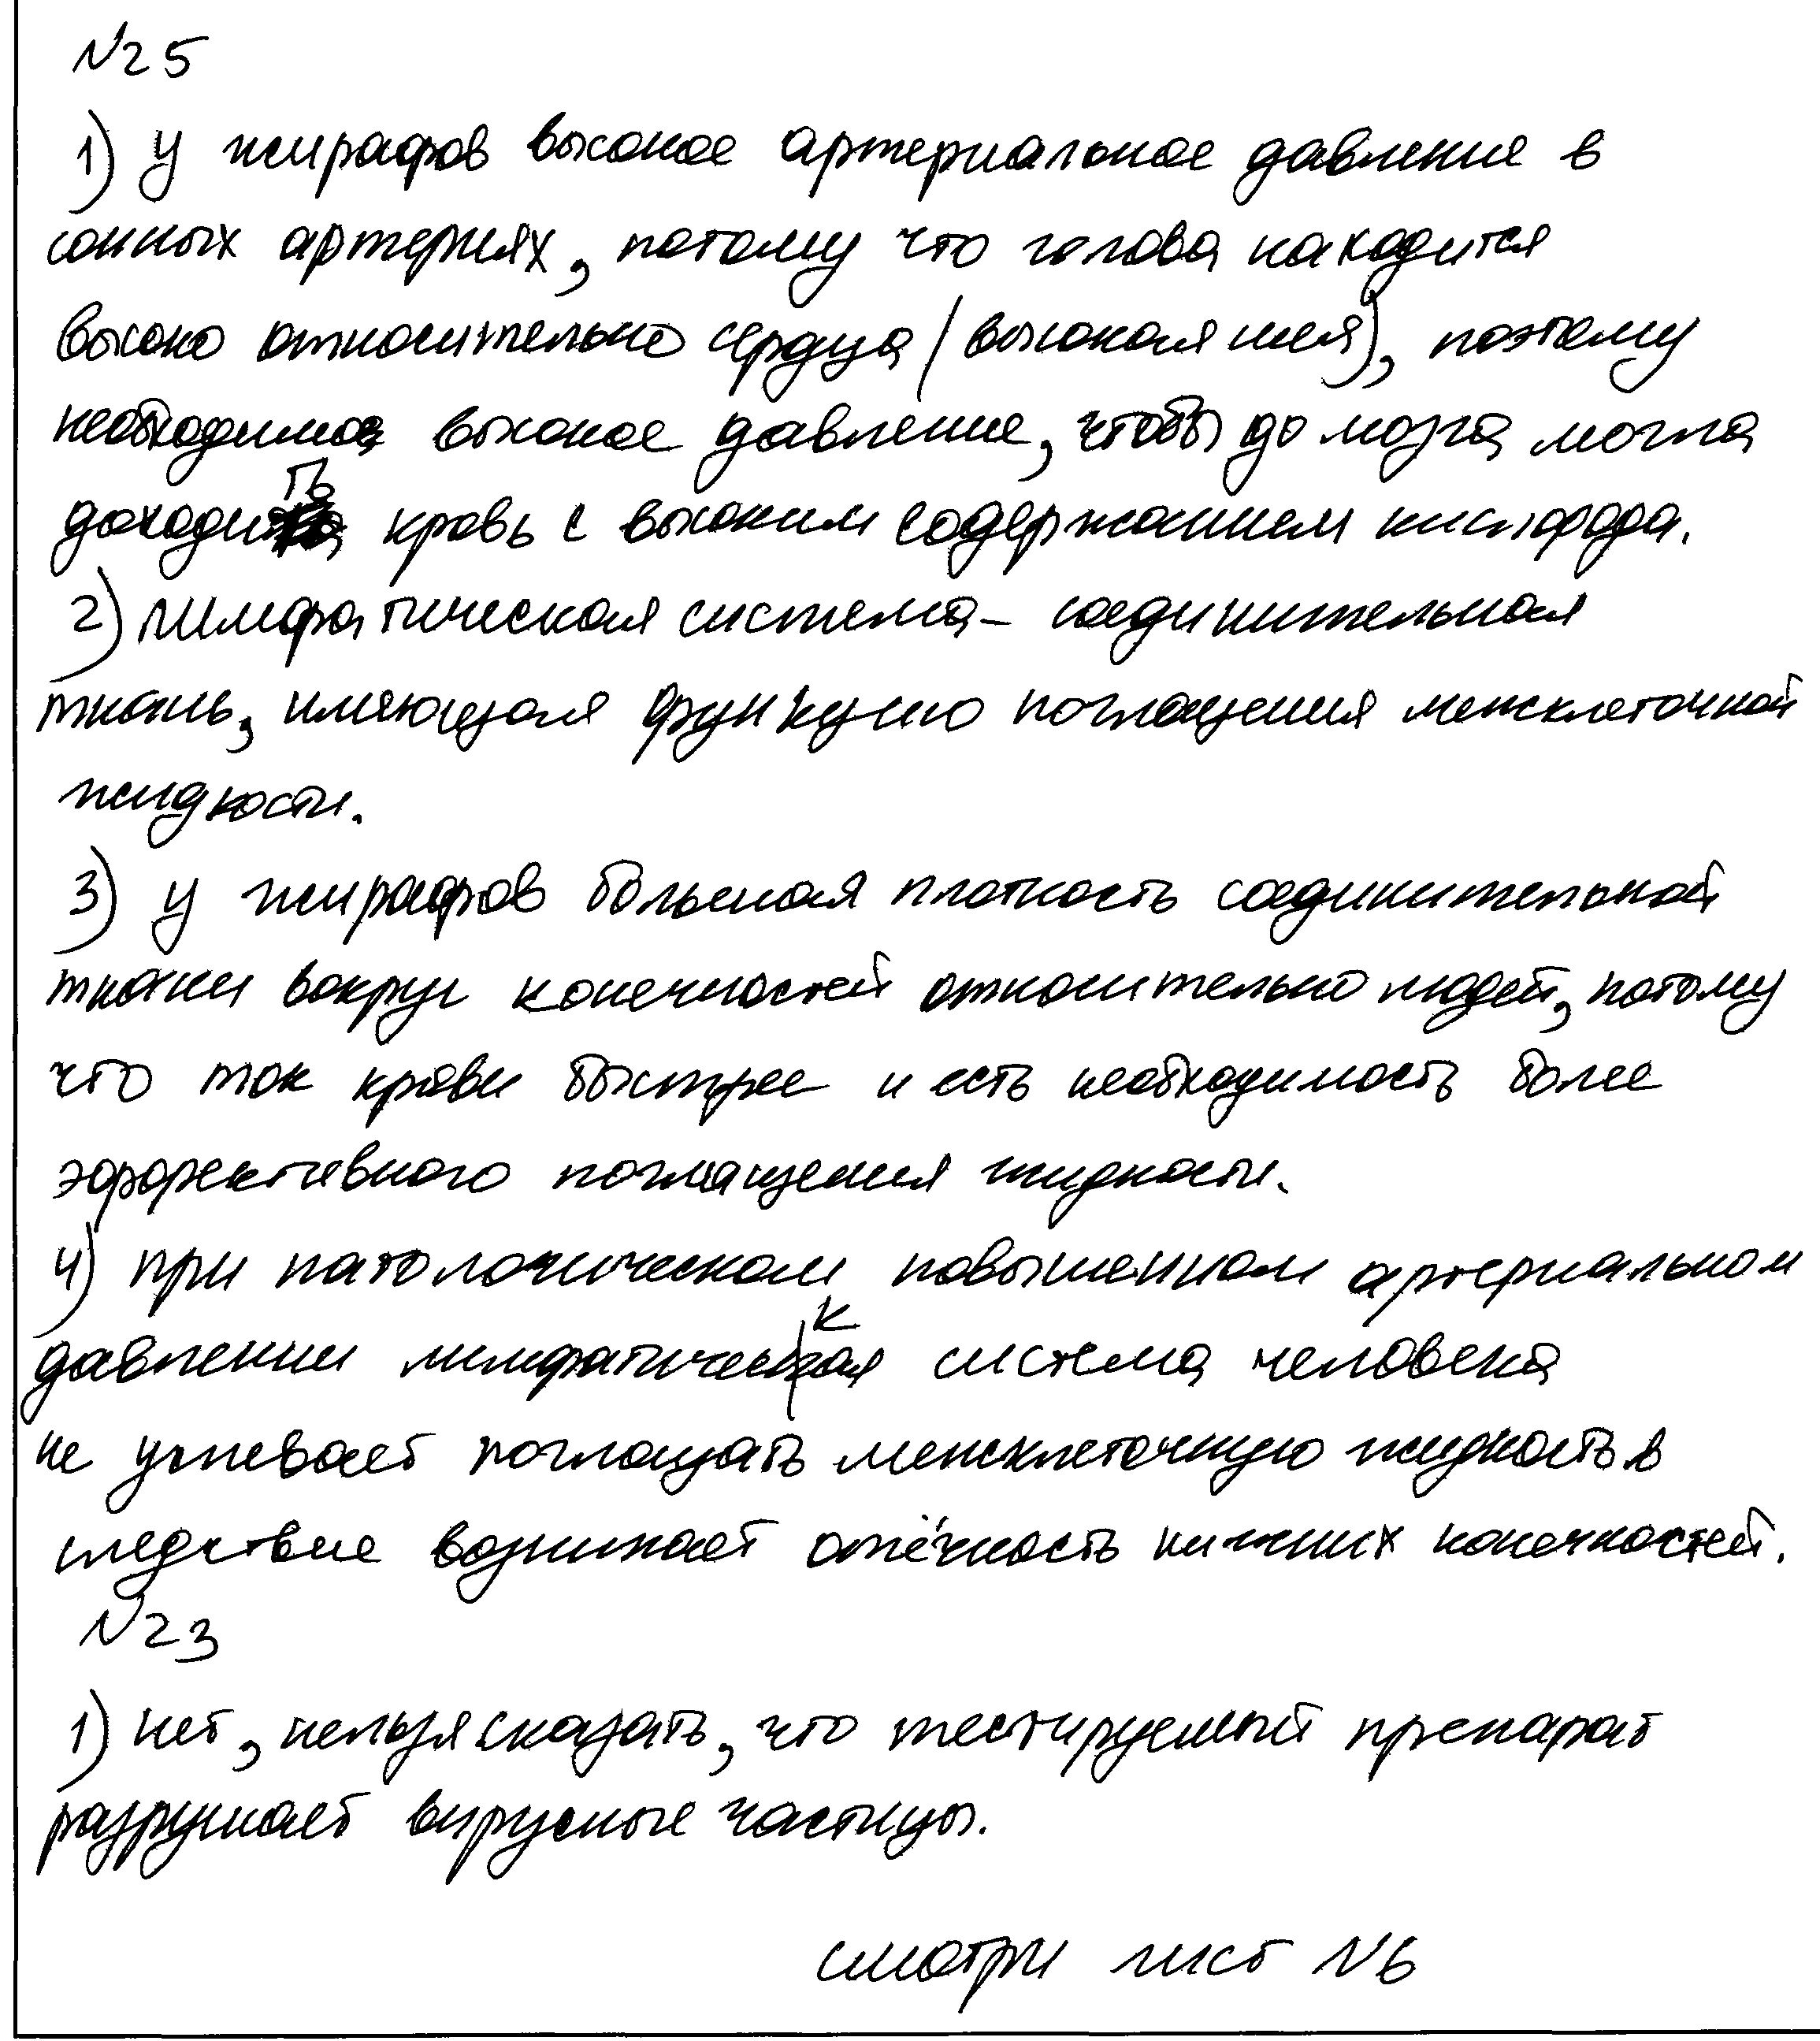 №25
1) у жирафов высокое артериальное давление в
сонных артериях, потому что голова находится
высоко относительно сердца (высокая шея), поэтому
необходимо высокое давление, чтобы до мозга могла
доходить кровь с высоким содержанием кислорода.
2) лимфатическая система – соединительная
ткань, имеющая функцию поглощения межклеточной
жидкости.
3) у жирафов большая плотность соединительной
ткани вокруг конечностей относительно людей, потому
что ток крови быстрее и есть необходимость более
эффективного поглащения жидкости.
4) при патологическом повышенном артериальном
давлении лимфатическая система человека
не успевает поглощать межклеточную жидкость в
следствие возникает отёчность нижних конечностей.
№23
1) нет, нельзя сказать, что тестируемый препарат
разрушает вирусные частицы.
смотри лист №6